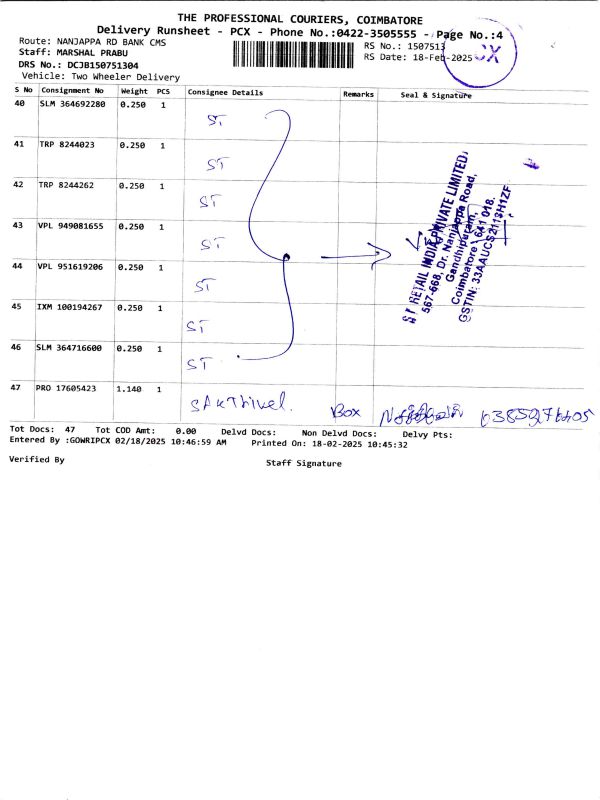 THE PROFESSIONAL COURIERS, COIMBATORE
Delivery Runsheet - PCX - Phone No.:0422-3505555 - Page No.:4
Route: NANJAPPA RD BANK CMS
RS No.: 1507513
CX
Staff: MARSHAL PRABU
RS Date: 18-Feb-2025
DRS No.: DCJB150751304
Vehicle: Two Wheeler Delivery
S No Consignment No Weight PCS Consignee Details Remarks Seal & Signature
40 SLM 364692280 0.250 1 ST
41 TRP 8244023 0.250 1 ST
42 TRP 8244262 0.250 1 ST
43 VPL 949081655 0.250 1 ST
44 VPL 951619206 0.250 1 ST
45 IXM 100194267 0.250 1 ST
46 SLM 364716600 0.250 1 ST
S T RETAIL INDIA PRIVATE LIMITED
567-668, Dr. Nanjappa Road,
Gandhipuram,
Coimbatore - 641 018.
GSTIN: 33AAUCS2113H1ZF
47 PRO 17605423 1.140 1 SAKThivel. Box
Tot Docs: 47 Tot COD Amt: 0.00 Delvd Docs: Non Delvd Docs: Delvy Pts:
Entered By :GOWRIPCX 02/18/2025 10:46:59 AM Printed On: 18-02-2025 10:45:32
Verified By
Staff Signature